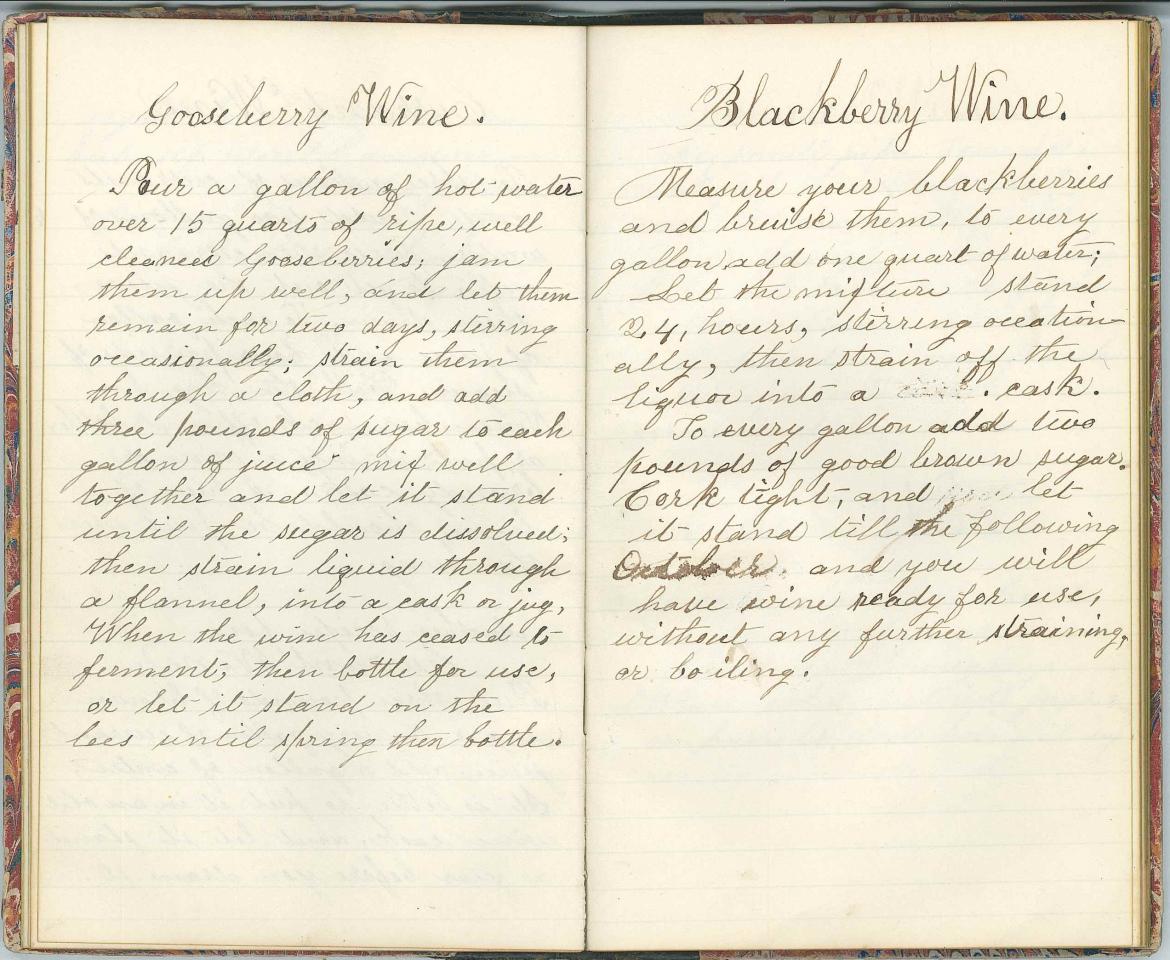 Gooseberry Wine.
Pour a gallon of hot water
over 15 quarts of ripe, well
cleaned Gooseberries; jam
them up well, and let them
remain for two days, stirring
occasionally; strain them
through a cloth, and add
three pounds of sugar to each
gallon of juice mix well
together and let it stand
until the sugar is dissolved;
then strain liquid through
a flannel, into a cask or jug,
When the wine has ceased to
ferment; then bottle for use,
or let it stand on the
lees until spring then bottle.
Blackberry Wine.
Measure your blackberries
and bruise them, to every
gallon add one quart of water;
Let the mixture stand
24, hours, stirring occation-
ally, then strain off the
liquor into a . cask.
To every gallon add two
pounds of good brown sugar.
Cork tight, and let
it stand till the following
October. and you will
have wine ready for use,
without any further straining,
or boiling.